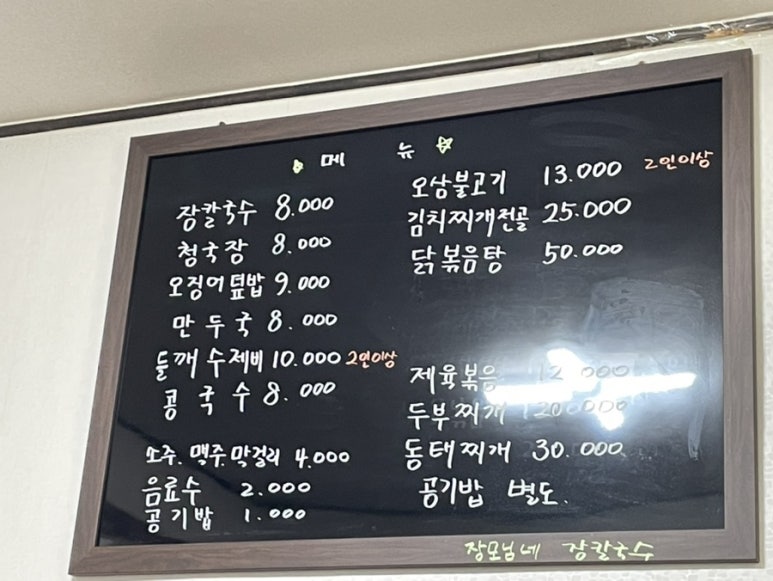 메 뉴
장칼국수 8.000
청국장 8.000
오징어덮밥 9.000
만두국 8.000
들깨수제비 10.000 2인이상
콩국수 8.000
소주.맥주.막걸리 4.000
음료수 2.000
공기밥 1.000
오삼불고기 13.000 2인이상
김치찌개전골 25.000
닭볶음탕 50.000
제육볶음 12.000
두부찌개 20.000
동태찌개 30.000
공기밥 별도.
장모님네 장칼국수